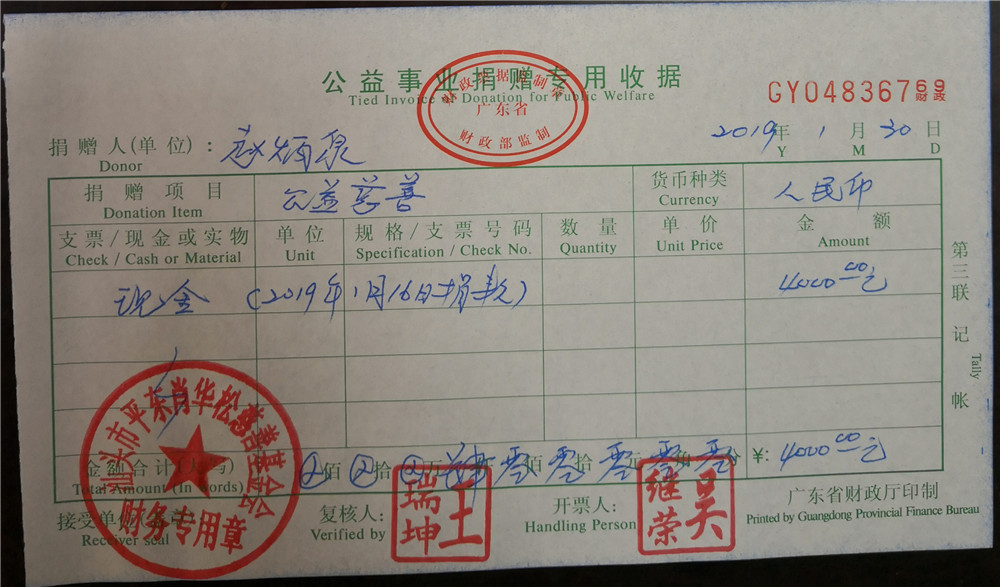 公益事业捐赠专用收据
Tied Invoice of Donation for Public Welfare
广东省
财政部监制
GY04836769
财政
捐赠人(单位): 赵炳泉
Donor
2019年 1月 30日
Y M D
捐赠项目 公益慈善 货币种类 人民币
Donation Item Currency
支票/现金或实物 单位 规格/支票号码 数量 单价 金额
Check / Cash or Material Unit Specification / Check No. Quantity Unit Price Amount
现金 (2019年1月16日捐款) 4000.00元
第三联 记帐
Tally
金额合计(大写) 佰 拾 万 肆 零佰 零拾 零元 零角 零分 ¥: 4000.00元
Total Amount (In Words)
兴市平东肖华松慈善基金会
财务专用章
接受单位
Receiver seal
复核人:
Verified by
王瑞坤
开票人:
Handling Person
吴继荣
广东省财政厅印制
Printed by Guangdong Provincial Finance Bureau